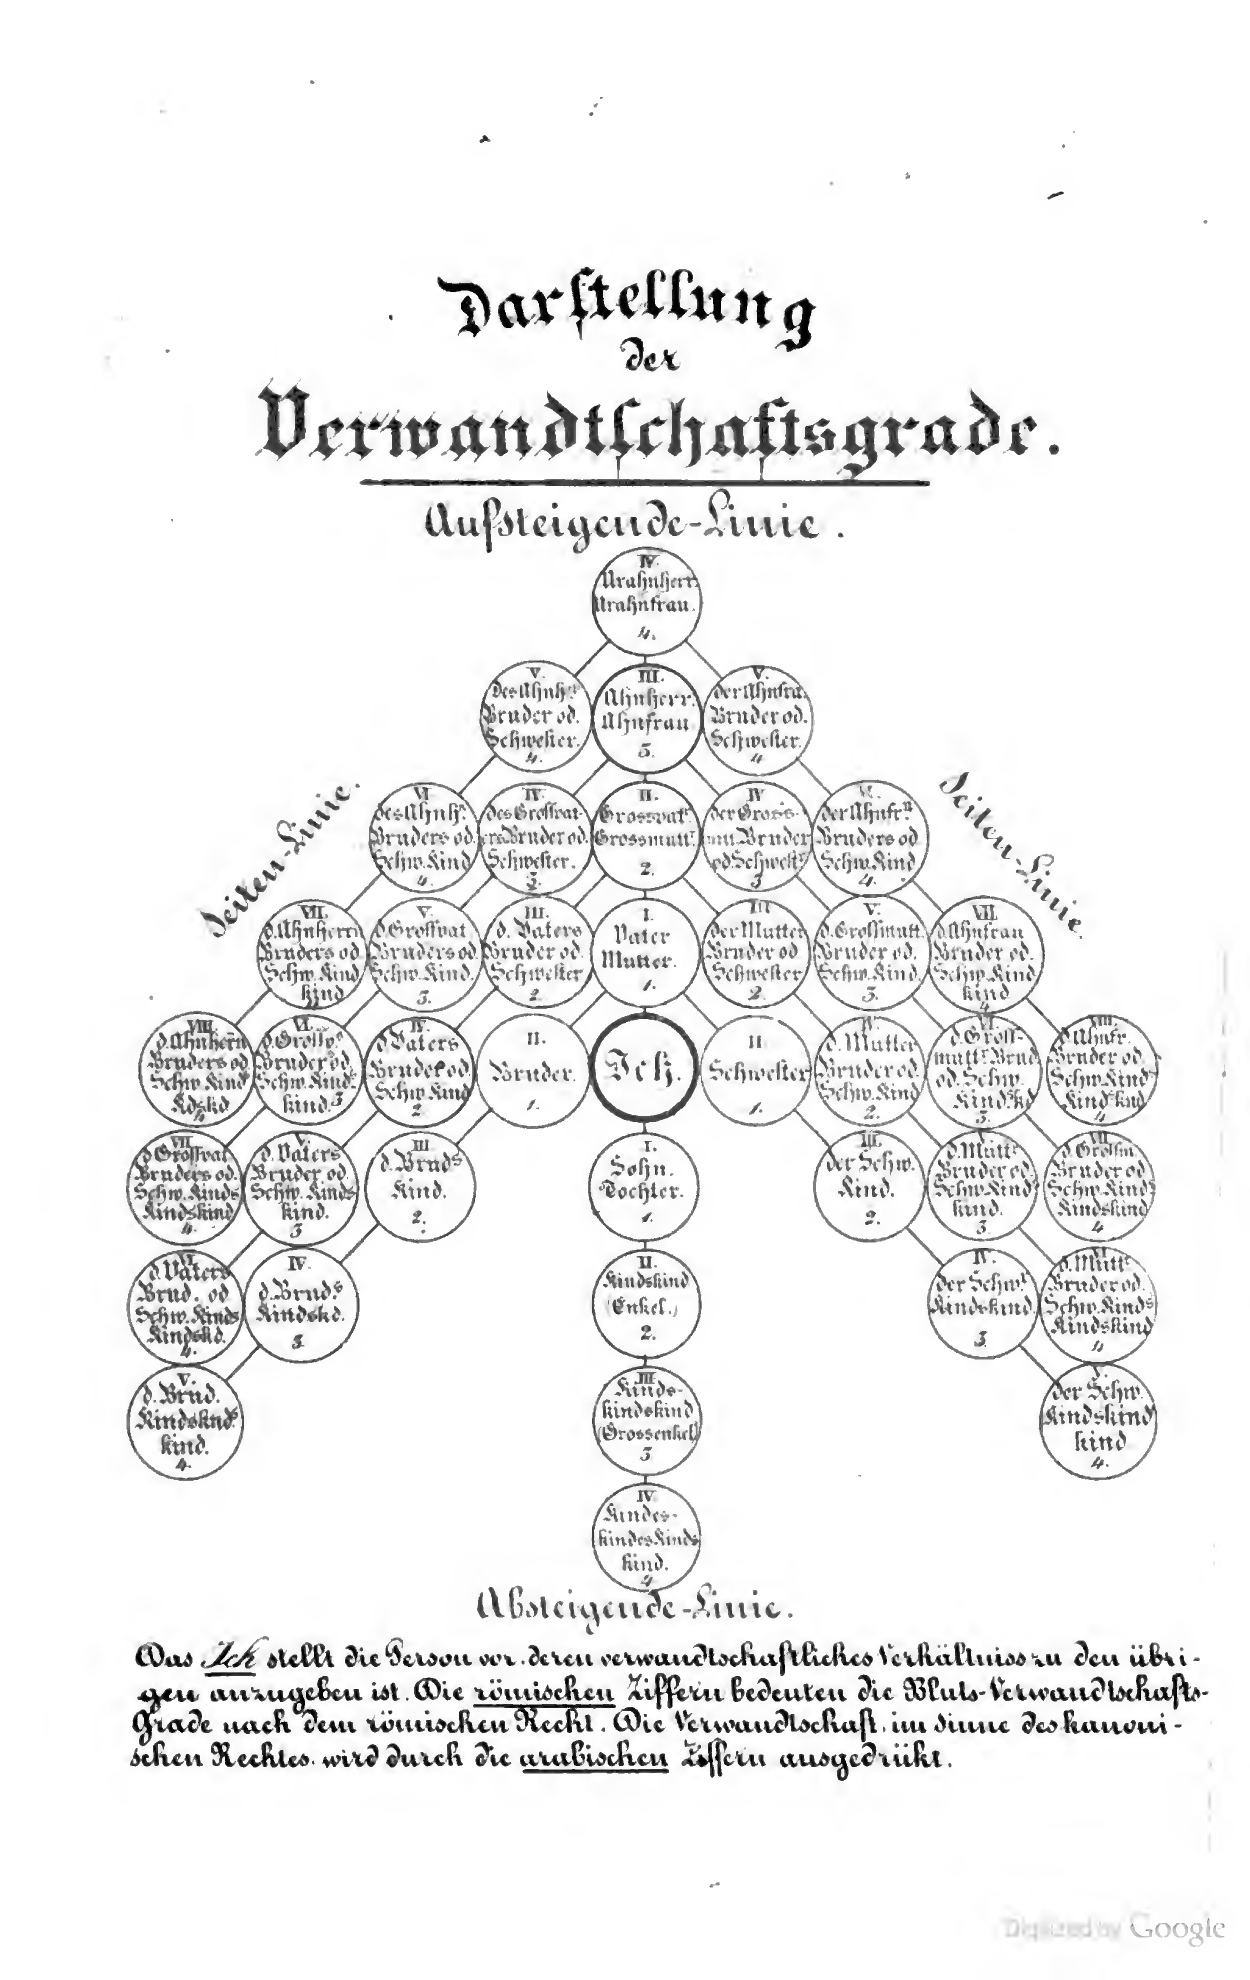 Darstellung
der
Verwandtschaftsgrade.
Aufsteigende-Linie.
IV.
Urahnherr
Urahnfrau.
4.
V.
des Ahnhr
Bruder od.
Schwester.
4.
III.
Ahnherr.
Ahnfrau
3.
V.
der Ahnfra.
Bruder od.
Schwester.
4
Seiten-Linie.
Seiten-Linie.
VI
des Ahnhr.
Bruders od.
Schw. Kind
4.
IV.
des Grossvat-
ers Bruder od.
Schwester.
3.
II.
Grossvatr.
Grossmuttr.
2.
IV
der Gross-
mu. Bruder
od Schwestr
3
VI.
der Ahnfr.
Bruders od
Schw. Kind
4.
VII.
d. Ahnherrn
Bruders od
Schw. Kind
kind
V.
d. Grossvat.
Bruders od.
Schw. Kind.
3.
III.
d. Vaters
Bruder od.
Schwester
2.
I.
Vater
Mutter.
1.
III
der Mutter
Bruder od
Schwester
2.
V.
d. Grossmutt.
Bruder od.
Schw. Kind.
3.
VII.
d. Ahnfrau
Bruder od.
Schw. Kind
kind
4
VIII.
d. Ahnherrn
Bruders od
Schw Kind
Kdskd
4
VI.
d. Grossvs
Bruder od.
Schw. Kinds
kind. 3
IV.
d. Vaters
Bruder od.
Schw. Kind
2.
II.
Bruder.
1.
Ich.
II
Schwester
1.
IV.
d. Mutter
Bruder od.
Schw. Kind
2.
VI.
d. Gross-
muttr Brud
od. Schw.
Kind kd
3.
VIII.
d. Ahnfr.
Bruder od.
Schw. Kind
Kinds knd
4
VII.
d Grossvat
Bruders od.
Schw. Kinds
Kindskind
4.
V.
d. Vaters
Bruder od.
Schw. Kinds
kind.
3
III
d. Bruds
Kind.
2.
I.
Sohn.
Tochter.
1.
III.
der Schw.
Kind.
2.
V.
d. Muttr
Bruder od.
Schw. Kinds
kind.
3.
VII
d. Grossm.
Bruder od
Schw. Kinds
Kindskind
4
VI.
d. Vaters
Brud. od
Schw. Kinds
Kindskd.
4.
IV.
d. Bruds
Kindskd.
3.
II.
Kindskind
(Enkel.)
2.
IV.
der Schwr.
Kindskind
3.
VI
d. Muttr
Bruder od.
Schw. Kinds
Kindskind
4
V.
d. Brud.
Kindskinds
kind.
4.
III
Kinds-
kindskind
(Grossenkel)
3
V.
der Schw.
Kindskind
kind
4.
IV.
Kindes-
kindes Kinds
kind.
4
Absteigende-Linie.
Das Ich stellt die Person vor, deren verwandtschaftliches Verhältniss zu den übri-
gen anzugeben ist. Die römischen Ziffern bedeuten die Bluts-Verwandtschafts-
Grade nach dem römischen Recht. Die Verwandtschaft im Sinne des kanoni-
schen Rechtes wird durch die arabischen Ziffern ausgedrükt.
Digitized by Google